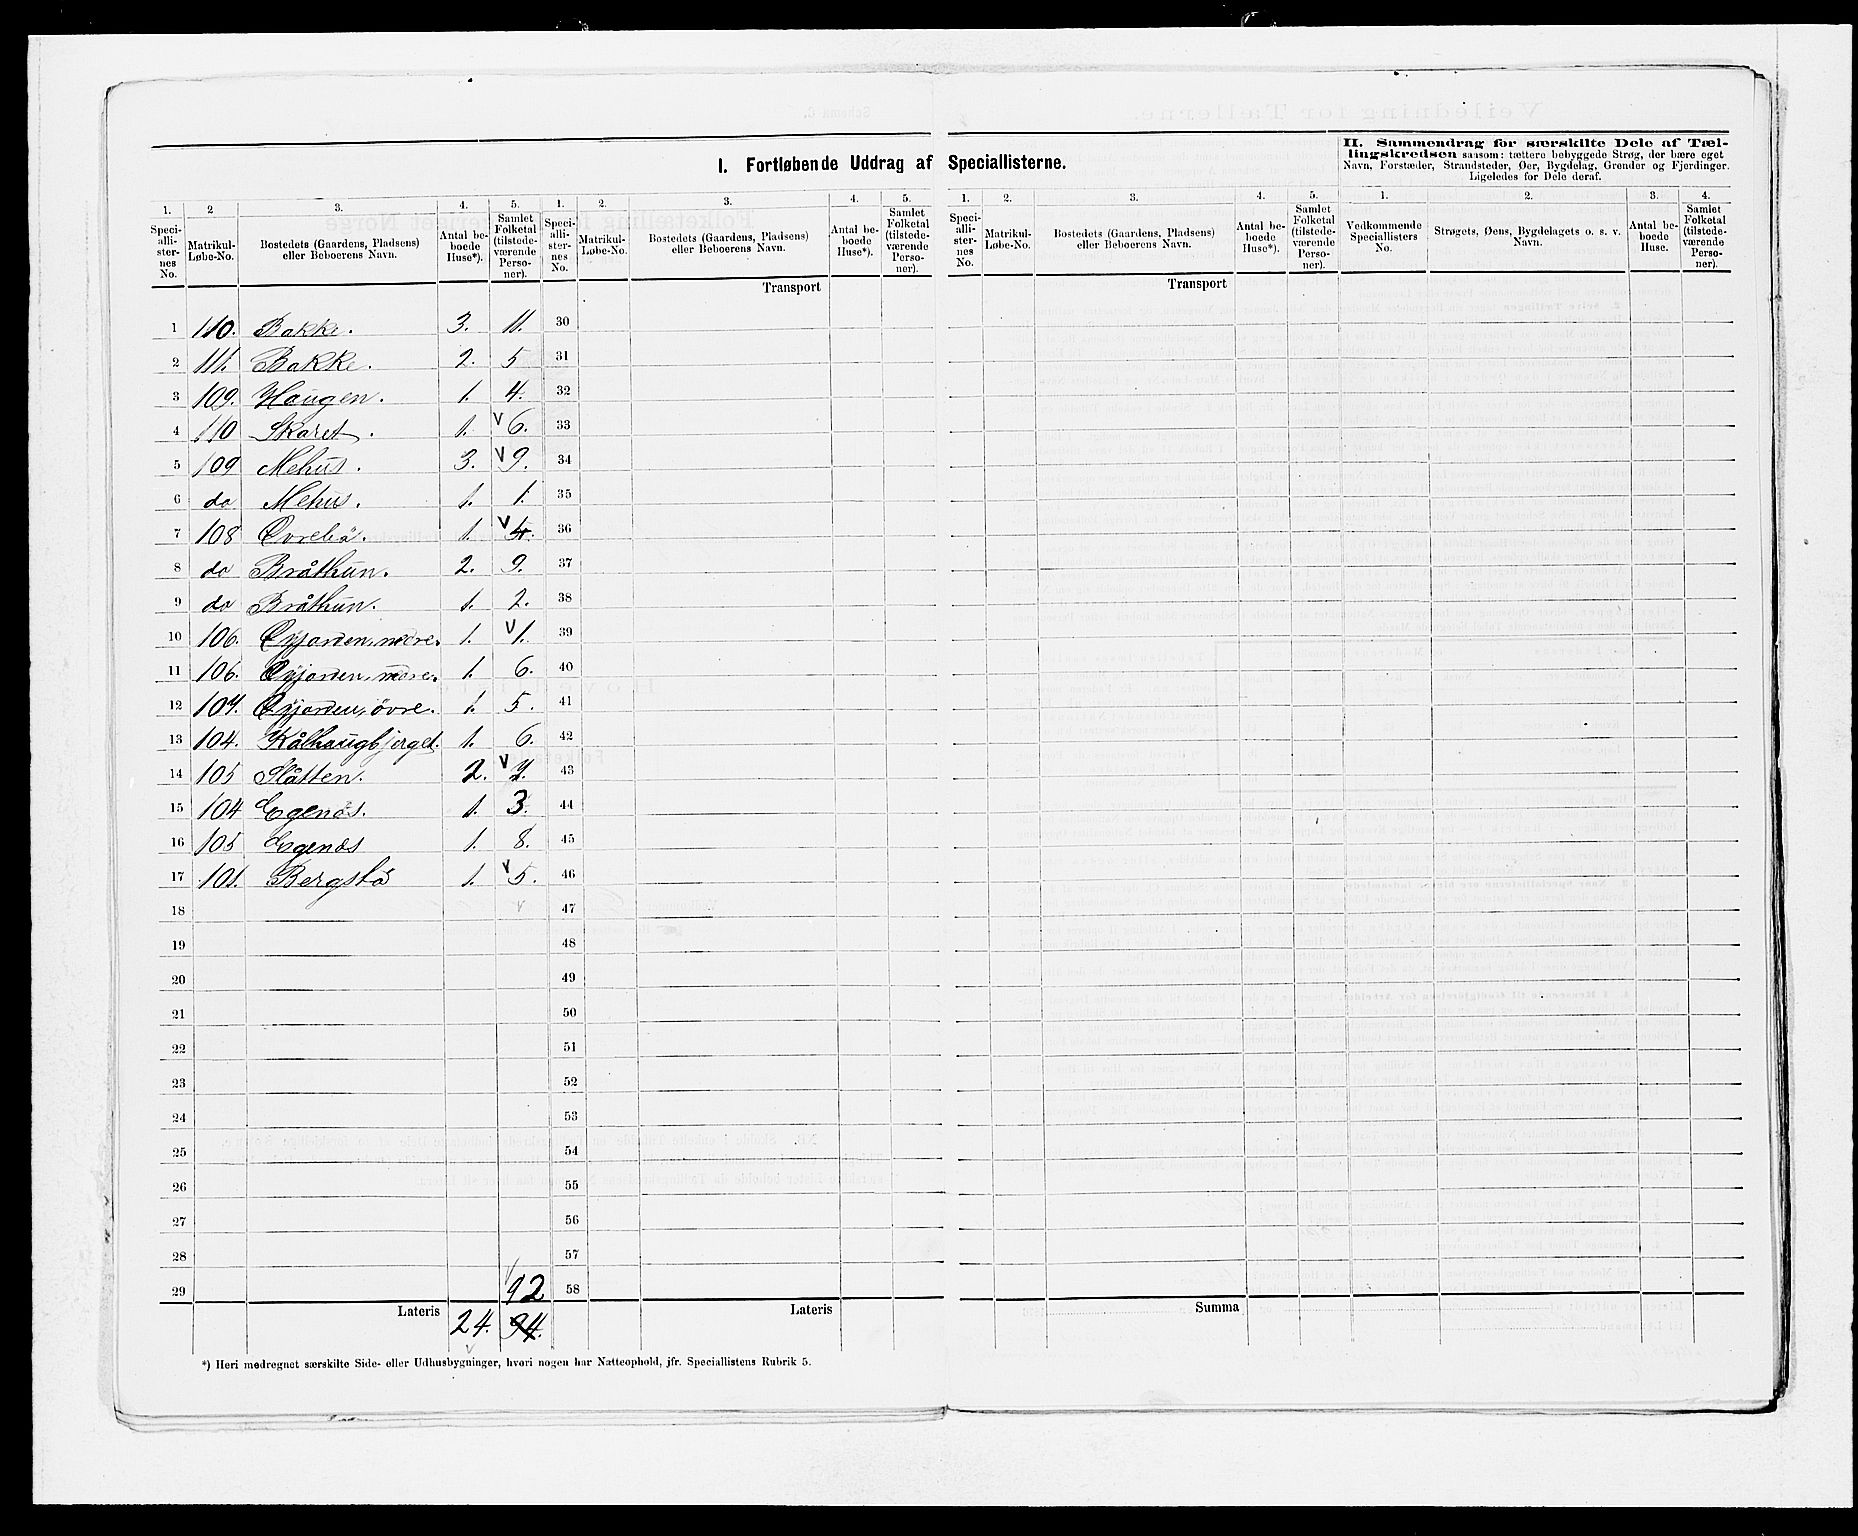 I. Fortløbende Uddrag af Speciallisterne.
II. Sammendrag for særskilte Dele af Tæl-
lingskredsen saasom: tættere bebyggede Strøg, der bære eget
Navn, Forstæder, Strandsteder, Øer, Bygdelag, Grender og Fjerdinger.
Ligeledes for Dele deraf.
1. 2 3. 4. 5. 1. 2. 3. 4. 5. 1. 2. 3. 4. 5. 1. 2. 3. 4.
Speci-alli-ster-nes No. Matrikul-Løbe-No. Bostedets (Gaardens, Pladsens) eller Beboerens Navn. Antal be-boede Huse*). Samlet Folketal (tilstede-værende Perso-ner).
Speci-alli-ster-nes No. Matrikul-Løbe-No. Bostedets (Gaardens, Pladsens) eller Beboerens Navn. Antal be-boede Huse*). Samlet Folketal (tilstede-værende Perso-ner).
Speci-alli-ster-nes No. Matrikul-Løbe-No. Bostedets (Gaardens, Pladsens) eller Beboerens Navn. Antal be-boede Huse*). Samlet Folketal (tilstede-værende Perso-ner).
Vedkommende Speciallisters No. Strøgets, Øens, Bygdelagets o. s. v. Navn. Antal be-boede Huse. Samlet Folketal (tilstede-værende Perso-ner).
Transport Transport
1 110. Bakke. 3. 11. 30
2 111. Bakke. 2. 5 31
3 109. Haugen. 1. 4. 32
4 110 Skaret. 1. 6. 33
5 109 Mehus. 3. 9. 34
6 do Mehus. 1. 1. 35
7 108 Øvrebö. 1. 4. 36
8 do Bråthun. 2. 9. 37
9 do Bråthun. 1. 2. 38
10 106. Øyjorden, nedre. 1. 1. 39
11 106. Øyjorden, nedre. 1. 6. 40
12 107. Øyjorden, övre. 1. 5. 41
13 104. Kålhaugbjerget. 1. 6. 42
14 105 Slåtten. 2. 7. 43
15 104 Egenæs. 1. 3. 44
16 105 Egenæs 1. 8. 45
17 101. Bergstö 1. 5. 46
18 47
19 48
20 49
21 50
22 51
23 52
24 53
25 54
26 55
27 56
28 57
29 92 58
Lateris 24. 94. Lateris Summa
*) Heri medregnet særskilte Side- eller Udhusbygninger, hvori nogen har Natteophold, jfr. Speciallistens Rubrik 5.